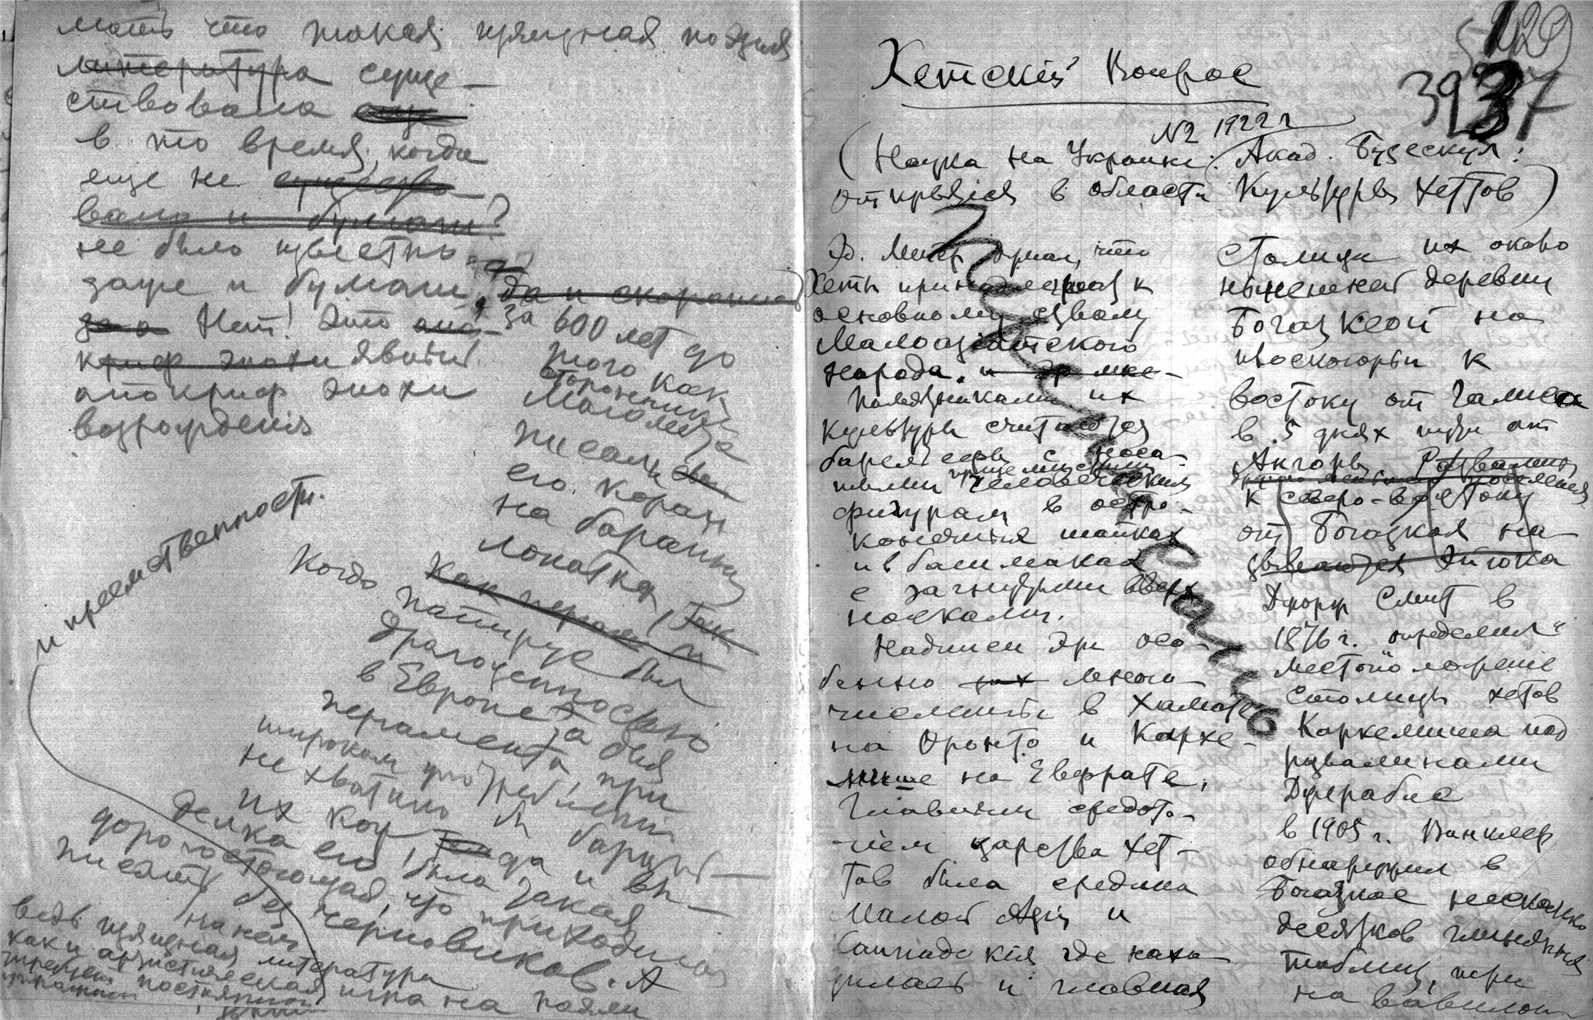 мать что такая изящная поэзия
литература суще-
ствовала еще
в то время, когда
еще не существо
вало и бумаги?
не было известно
даже и бумаги,
Нет! Это
явный
апокриф эпохи
возрождения
за 600 лет до
того как
сторонники
Магомета
писали
его коран
на бараньих
лопатках
и преемственности.
Когда папирус был
драгоценностью
в Европе, а для
пергамента, при
широком употреблении
не хватило бы бараньих
их кож, да и вы-
делка его была такая
дорогостоящая, что приходилось
писать без черновиков. А
ведь изящная литература
как и артистическая игра на рояли
требует постоянной
129
393 37
Хетский Вопрос
N2 1922 г
(Наука на Украине: Акад. Бузескул:
открытия в области Культуры Хеттов)
Э. Мейер думал, что
Хеты принадлежат к
основному слою
Малоазиатского
народа.
Памятниками их
культуры считаются
барельефы с носа-
тыми человеческими
фигурами в остро-
конечных шапках
и в башмаках
с загнутыми вверх
носками.
Надписи эти осо-
бенно много
численны в Хамате
на Оронто и Карке-
мише на Евфрате.
Главным средото-
чием царства Хет-
тов была средина
Малой Азии и
Каппадокия где нахо
дилась и главная
столица их около
нынешней деревни
Богазкеой на
плоскогорьи к
востоку от Галиса
в 5 днях пути от
Ангоры. Развалины
к северо-востоку
от Богазкоя на
Джордж Смит в
1876 г. "определил"
местоположение
столицы хетов
Каркемиша под
развалинами
Джераблс
в 1905 г. Винклер
обнаружил в
Богазкое несколько
десятков глиняных
таблиц, при
на вавилон
Не печатано